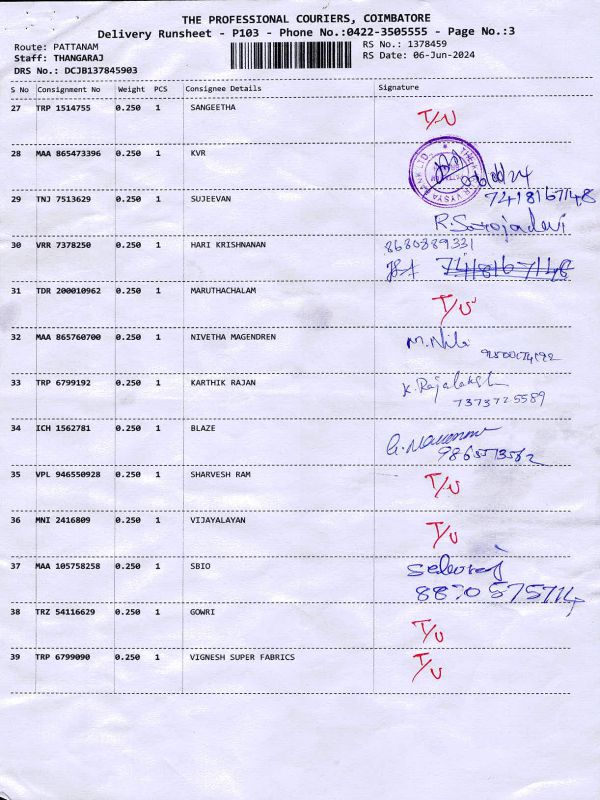 THE PROFESSIONAL COURIERS, COIMBATORE
Delivery Runsheet - P103 - Phone No.:0422-3505555 - Page No.:3
Route: PATTANAM
RS No.: 1378459
Staff: THANGARAJ
RS Date: 06-Jun-2024
DRS No.: DCJB137845903
S No Consignment No Weight PCS Consignee Details Signature
27 TRP 1514755 0.250 1 SANGEETHA T/U
28 MAA 865473396 0.250 1 KVR
29 TNJ 7513629 0.250 1 SUJEEVAN 7418167148
R. Sarojadevi
30 VRR 7378250 0.250 1 HARI KRISHNANAN 8680889331
7418167148
31 TDR 200010962 0.250 1 MARUTHACHALAM T/U
32 MAA 865760700 0.250 1 NIVETHA MAGENDREN
33 TRP 6799192 0.250 1 KARTHIK RAJAN K. Rajalaksh
7373725589
34 ICH 1562781 0.250 1 BLAZE
9865573562
35 VPL 946550928 0.250 1 SHARVESH RAM T/U
36 MNI 2416809 0.250 1 VIJAYALAYAN T/U
37 MAA 105758258 0.250 1 SBIO Selvaraj
8870575714
38 TRZ 54116629 0.250 1 GOWRI T/U
39 TRP 6799090 0.250 1 VIGNESH SUPER FABRICS T/U